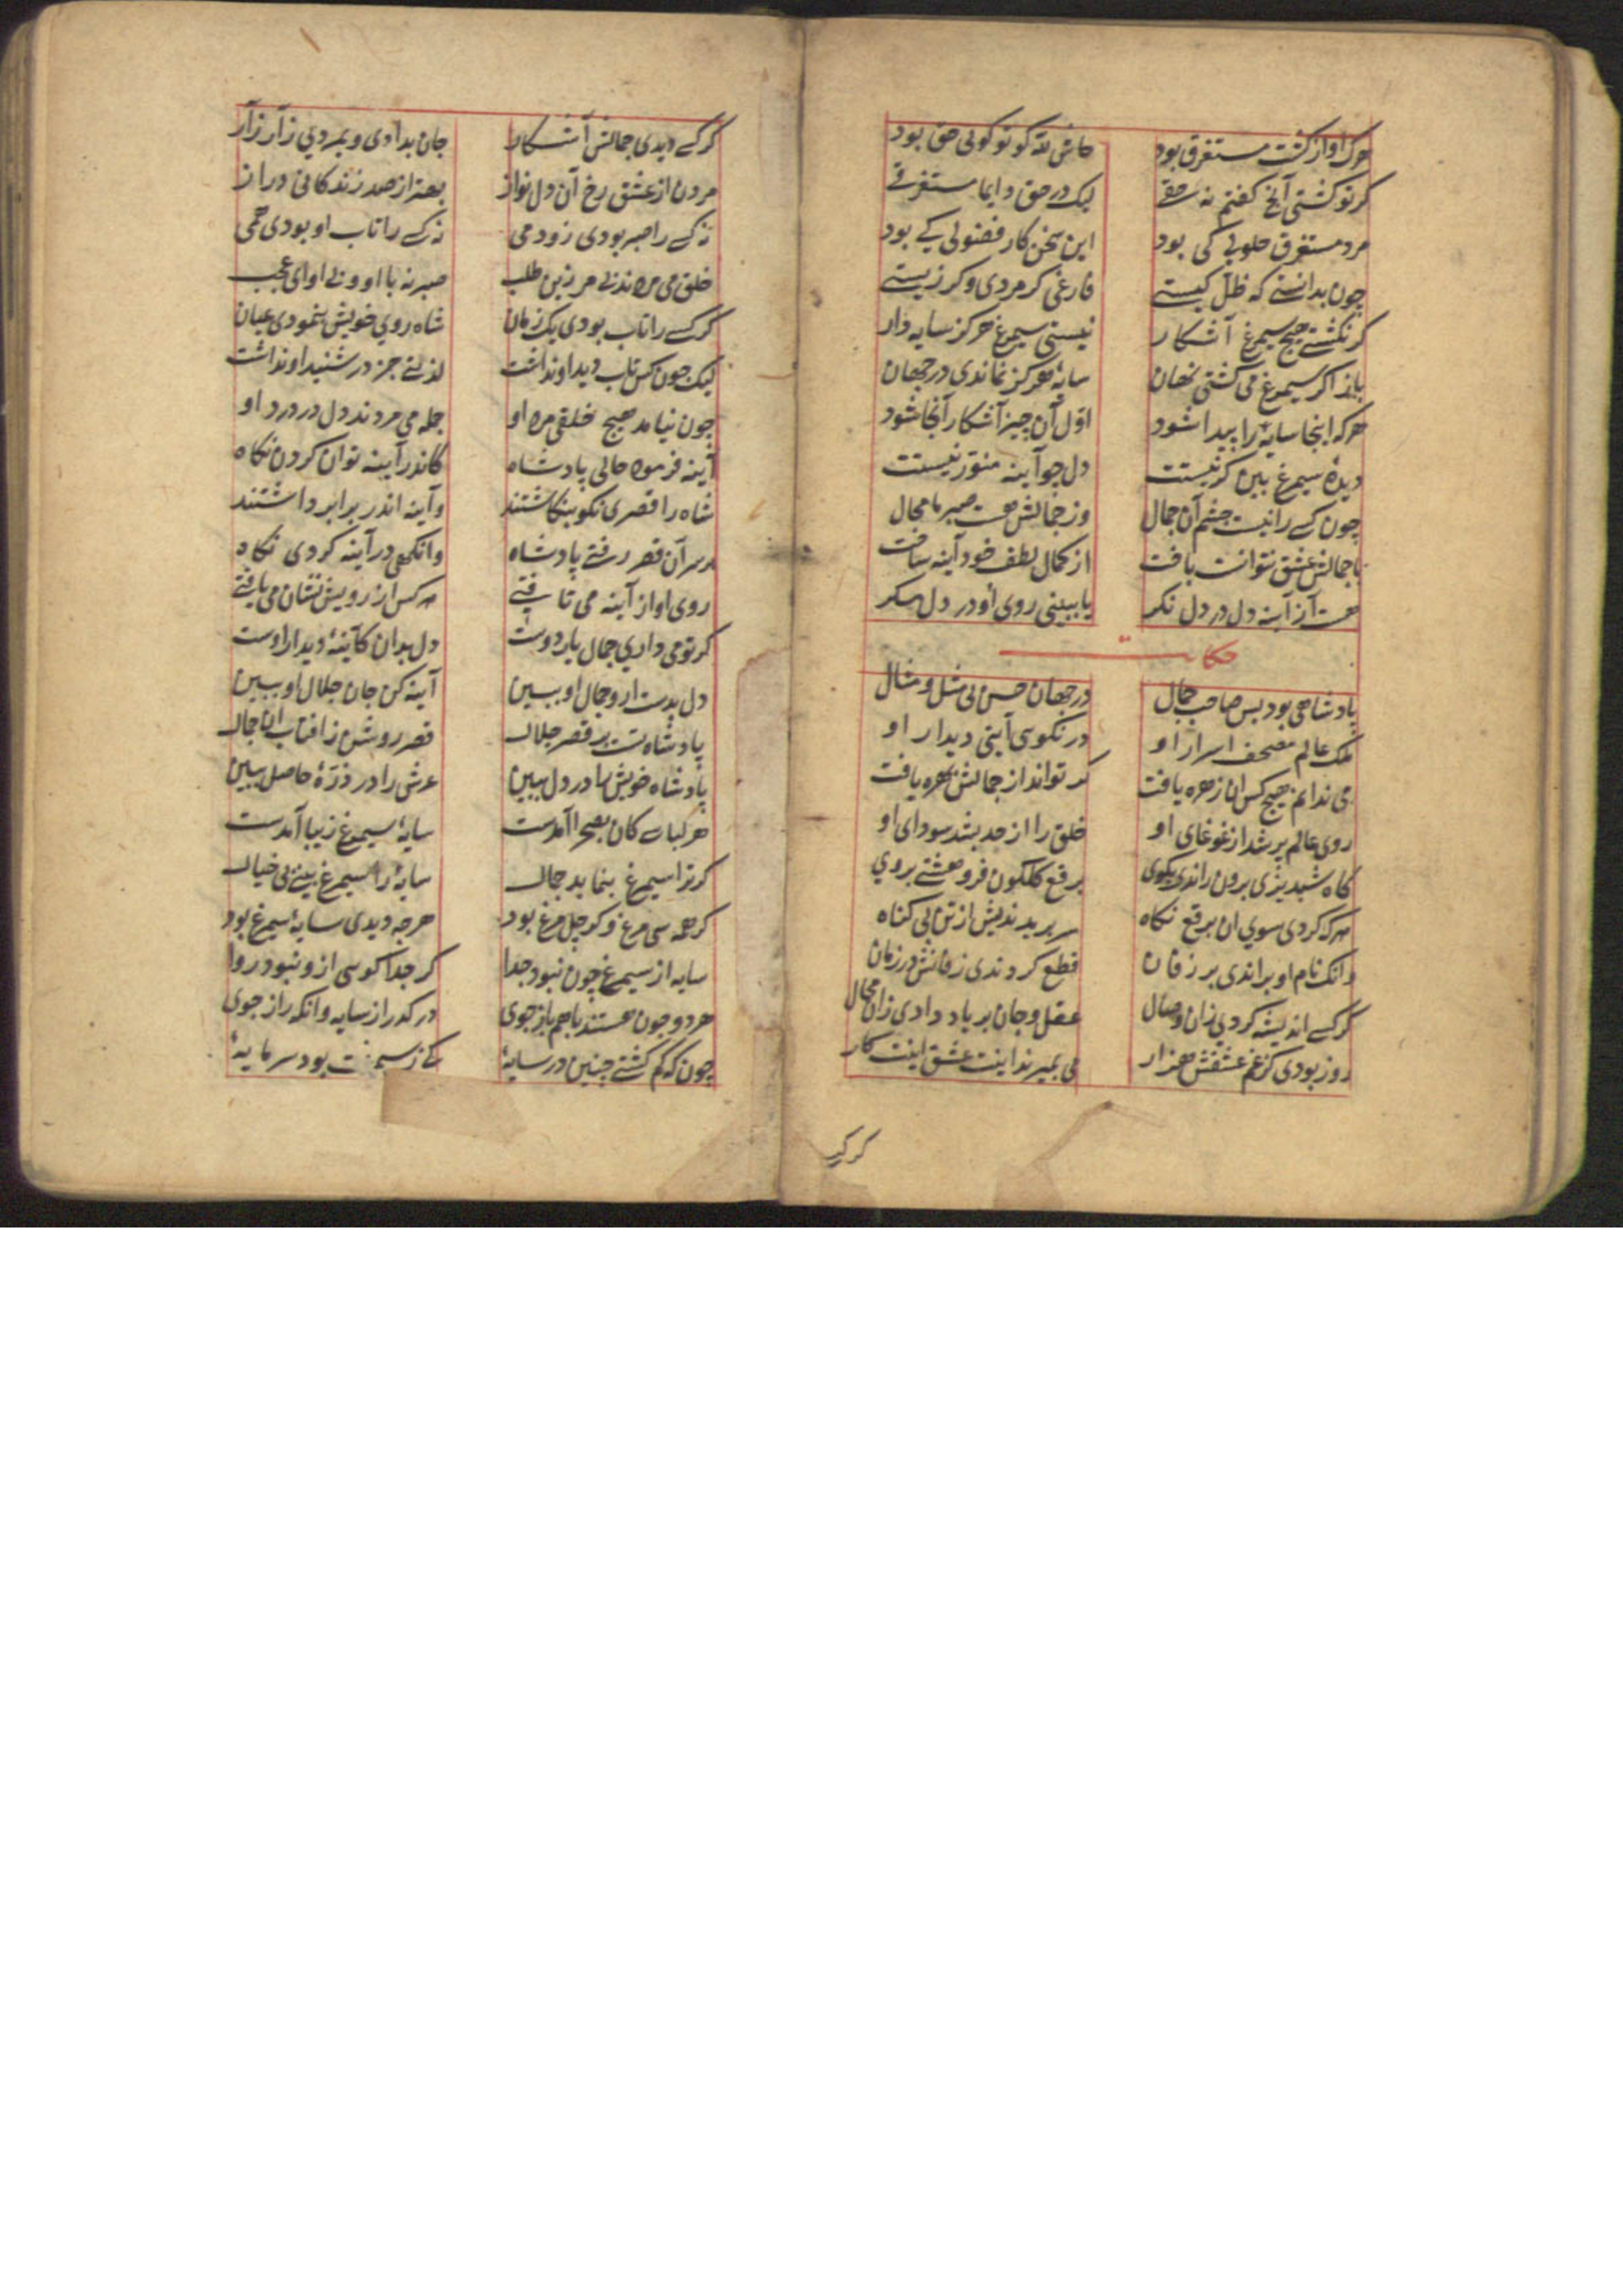 هرک او از کشت مستغرق بود حاش لله کر تو کوئی حق بود
کر تو کشتی آنج کفتم نه حقی لیک در حق دایما مستغرقی
مرد مستغرق حلولی کی بود این سخن کار فضولی کی بود
چون بدانستی که ظل کیستی فارغی کر مردی و کر زیستی
کر نکشتی هیج سیمرغ آشکار نیستی سیمرغ هرکز سایه دار
باز اکر سیمرغ می کشتی نهان سایهٔ هرکز نماندی در جهان
هرکه اینجا سایهٔ را پیدا شود اول آن چیز آشکار آنجا شود
دیدهٔ سیمرغ بین کر نیستت دل جو آینه منور نیستت
چون کسی را نیست چشم آن جمال وز جمالش هست صبر ما محال
با جمالش عشق نتوانست باخت از کمال لطف خود آینه ساخت
هست آن آینه دل در دل نکر تا ببینی روی او در دل مکر
حکایت
پادشاهی بود بس صاحب جمال در جهان حسن بی مثل و مثال
ملک عالم مصحف اسرار او در نکوی آیتی دیدار او
می ندانم هیچ کس ان زهره یافت کو تواند از جمالش بهره یافت
روی عالم پر شد از غوغای او خلق را از حد بشد سودای او
کاه شبدیزی برون راندی بکوی برقع کلکون فرو هشتی بروی
هرکه کردی سوی ان برقع نکاه سر بریدندیش از تن بی کناه
وانک نام او براندی بر زفان قطع کردندی زفانش در زمان
کر کسی اندیشه کردی زان وصال عقل و جان بر باد دادی زان محال
روز بودی کز غم عشقش هزار می بمیرند اینت عشق اینت کار
کر کسی
کر کسی دیدی جمالش آشکار جان بدادی و بمردی زار زار
مردن از عشق رخ آن دل نواز بهتر از صد زندکانی دراز
نه کسی را صبر بودی زو دمی نه کسی را تاب او بودی همی
خلق می مردند زین طلب صبر نه با او و نی او ای عجب
کر کسی را تاب بودی یک زمان شاه روی خویش بنمودی عیان
لیک چون کس تاب دید او نداشت لذتی جز در شنید او نداشت
چون نیامد هیج خلقی مرد او جمله می مردند دل در درد او
آینه فرمود حالی پادشاه کاندر آیینه توان کردن نکاه
شاه را قصری نکو بنکاشتند و آینه اندر برابر داشتند
بر سر آن قصر رفتی پادشاه وانکهی در آینه کردی نکاه
روی او از آینه می تافتی هر کس از رویش نشان می یافتی
کر تو می داری جمال یار دوست دل بدان کآینهٔ دیدار اوست
دل بدست ار و جمال او ببین آینه کن جان جلال او ببین
پادشاه تست بر قصر جلال قصر روشن ز افتاب ان جمال
پادشاه خویش را در دل ببین عرش را در ذرهٔ حاصل ببین
هر لباسی کان بصحرا آمدست سایهٔ سیمرغ زیبا آمدست
کر ترا سیمرغ بنماید جمال سایهٔ را سیمرغ بینی بی خیال
کر همه سی مرغ و کر چل مرغ بود هرجه دیدی سایهٔ سیمرغ بود
سایه از سیمرغ چون نبود جدا کر جدا کویی ازو نبود روا
هر دو چون هستند با هم باز جوی در کذر از سایه وانکه راز جوی
چون که کم کشتی چنین در سایهٔ کی ز سیمرغت بود سرمایهٔ